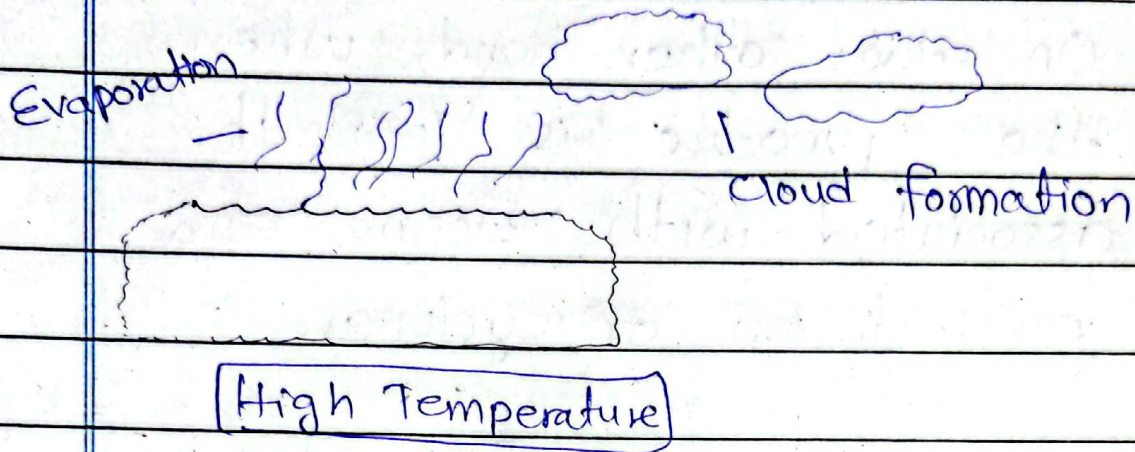 Evaporation
cloud formation
High Temperature